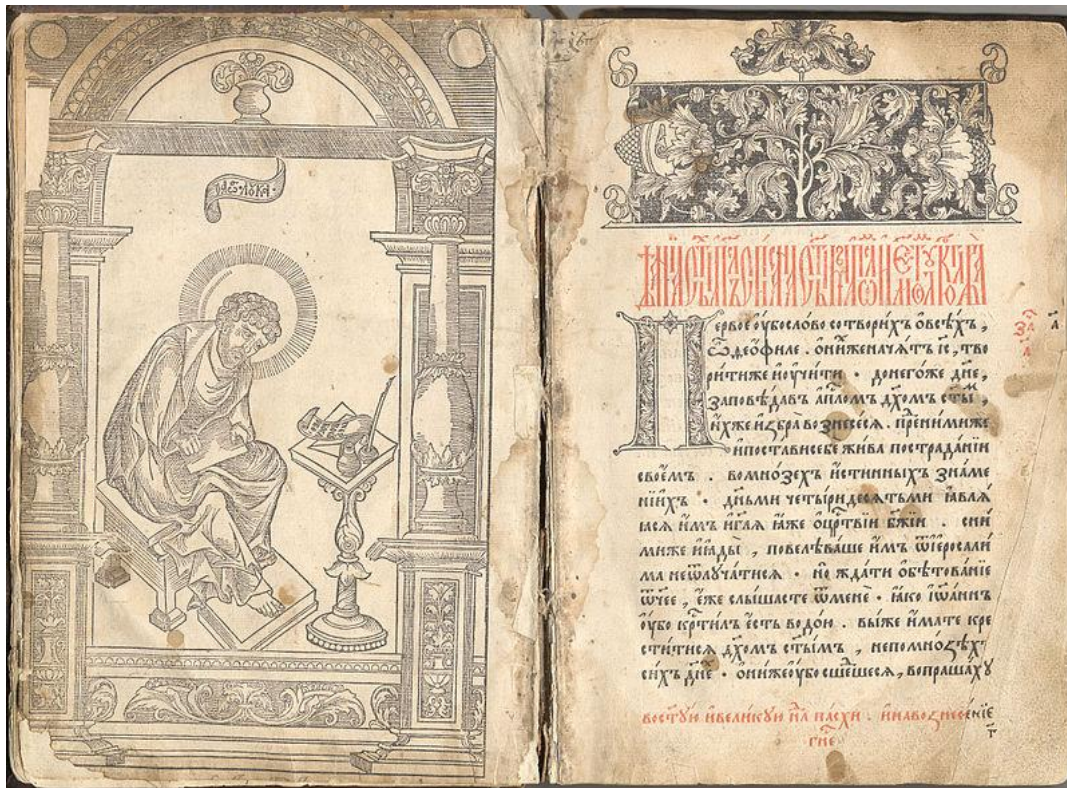 лꙋка
Первое ᲂу҆бослово сотвори́хъ ѻ҆всѣ́хъ ,
ѽ҆ део́филе . ѻ҆ ни́хженача́тъ і҆с҃ , тво
ри́тиже и҆ᲂу҆чи́ти . донего́же дн҃е ,
заповѣ́давъ а҆пⷭ҇ломъ дх҃омъ ст҃ыⷨ ,
и҆́хже и҆збра̀ вознесе́сѧ . прⷣени́миже
и҆поста́висебе жи́ва пострада́нїи
свое́мъ . вомно́зех и҆́стинныхъ зна́ме
нїихъ . дн҃ьми четы́ридесѧтьми ꙗ҆влѧ́
ꙗсѧ и҆̀мъ и҆гл҃ѧ ꙗ҆́же ѻ҆црⷭ҇твїи бж҃їи . сни́
миже и҆ꙗды̀ , повелѣ́ваше и҆̀мъ ѿі҆еросали́
ма неѿлꙋча́тисѧ . но жда́ти ѻ҆бѣтова́нїе
ѿч҃ее , є҆́же слы́шасте ѿ мене . ꙗ҆́ко і҆ѡ҃а́ннъ
ᲂу҆́бо крⷭ҇ти́лъ є҆́сть водо́ю . вы́же и҆́мате кре
сти́тисѧ дх҃омъ ст҃ы́мъ , непомно́ѕѣхъ
си́хъ дн҃е . ѻ҆ни́жеᲂу҆́бо сше́дшесѧ , вопраша́хꙋ
востꙋ́ю и҆вели́кꙋю нⷣлю па́схи . и҆навознесе́нїе
гн҃е